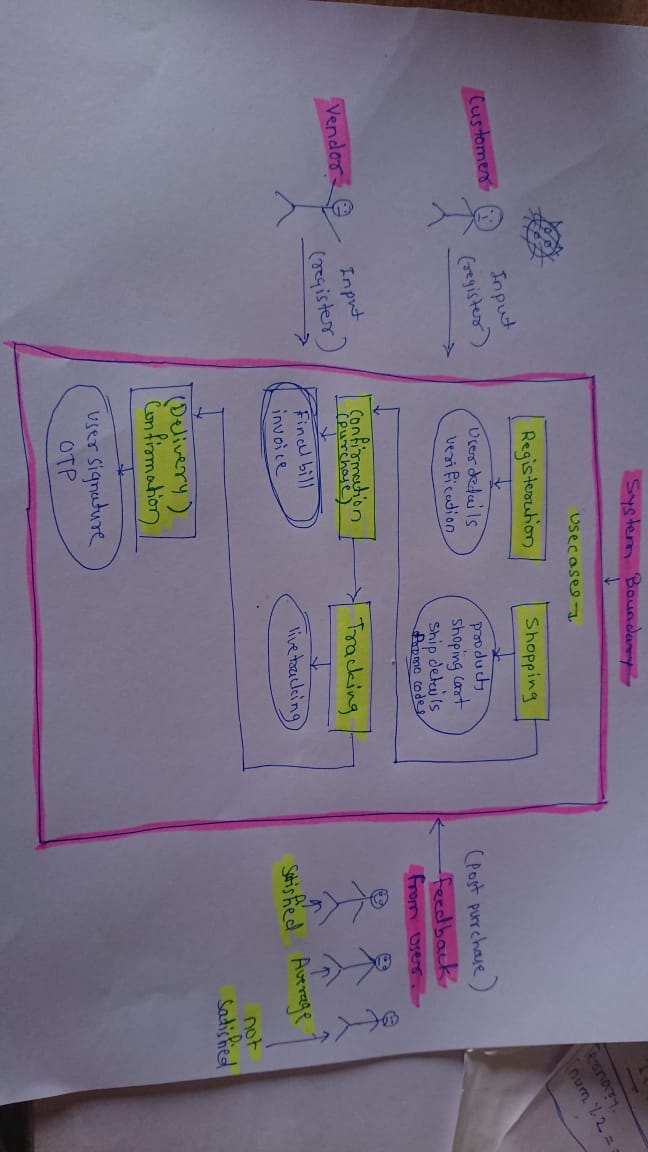 System Boundary
usecases→
Customer
Input
(register)
Vendor
Input
(register)
Registeration
User details
verification
Shopping
products
shoping cart
ship details
promo codes
Confirmation
(purchase)
Final bill
invoice
Tracking
live tracking
(Delivery)
Confirmation
user signature
OTP
(post purchase)
feedback
from users.
Satisfied
Average
not
satisfied
num % 2 =